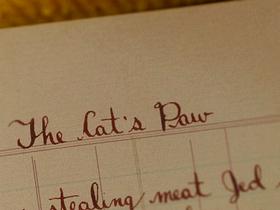 The Cat's Paw
stealing meat Jed